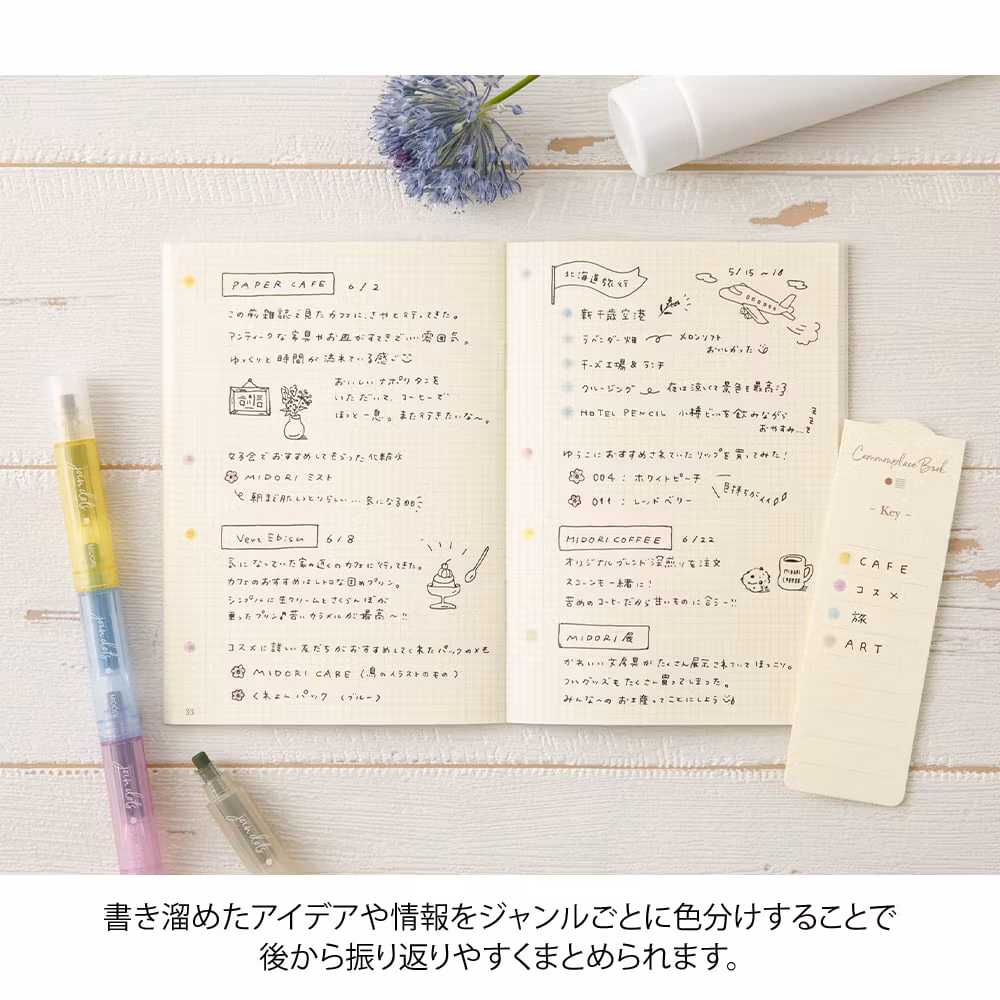 PAPER CAFE 6/2
この前雑誌で見たカフェに、さやと行ってきた。
アンティークな家具やお皿がすてきでいい雰囲気。
ゆっくりと時間が流れている感じ
おいしいナポリタンを
いただいて、コーヒーで
ほっと一息。また行きたいな〜。
女子会でおすすめしてもらった化粧水
MIDORI ミスト
朝まで肌しっとりらしい...気になる
Vert Ebisu 6/8
気になっていた家の近くのカフェに行ってきた。
カフェのおすすめはレトロな固めプリン。
シンプルに生クリームとさくらんぼが
乗ったプリン♪苦いカラメルが最高〜!!
コスメに詳しい友だちがおすすめしてくれたパックのメモ
MIDORI CARE (鳥のイラストのもの)
くれよんパック (ブルー)
33
北海道旅行
5/15~18
新千歳空港
ラベンダー畑 メロンソフト
おいしかった
チーズ工場&ランチ
クルージング 夜は涼しくて景色も最高
HOTEL PENCIL 小樽ビールを飲みながら
おやすみ...
zzz
ゆうこにおすすめされていたリップを買ってみた!
004 : ホワイトピーチ
011 : レッドベリー
色持ちがイイ
MIDORI COFFEE 6/22
オリジナルブレンド深煎りを注文
スコーンも一緒に!
苦めのコーヒーだから甘いものに合う〜!!
MIDORI COFFEE
MIDORI 展
かわいい文房具がたくさん展示されていてほっこり。
ついグッズもたくさん買ってしまった。
みんなへのお土産ってことにしよう
Commonplace Book
- Key -
CAFE
コスメ
旅
ART
join dots
MIDORI
join dots
MIDORI
join dots
join dots
書き溜めたアイデアや情報をジャンルごとに色分けすることで
後から振り返りやすくまとめられます。